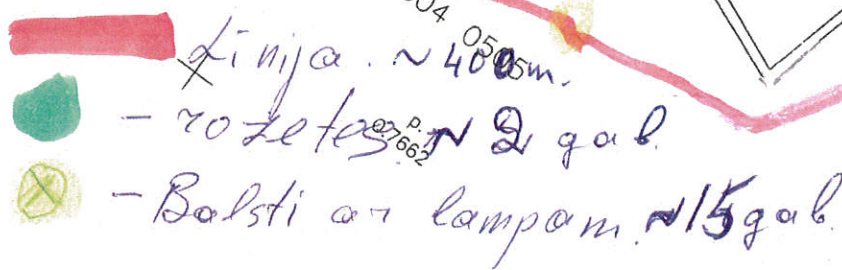 04
0505
Linija. ~ 400m.
- rozetes ~ 2 gab.
p.
07662
- Balsti ar lampam. ~15gab.